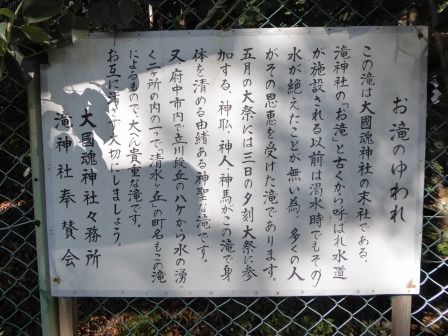 お滝のゆわれ
この滝は大國魂神社の末社である、
滝神社の「お滝」と古くから呼ばれ水道
が施設される以前は渇水時でもその
水が絶えたことが無い為、多くの人
がその恩恵を受けた滝であります。
五月の大祭には三日の夕刻大祭に参
加する、神職、神人、神馬がこの滝で身
体を清める由緒ある神聖な滝です。
又、府中市内で立川段丘のハケから水の湧
く二ヶ所の内の一つで「清水ヶ丘」の町名もこの滝
によるもので、大へん貴重な滝です。
お互に清潔で大切にしましょう。
大國魂神社々務所
滝神社奉賛会